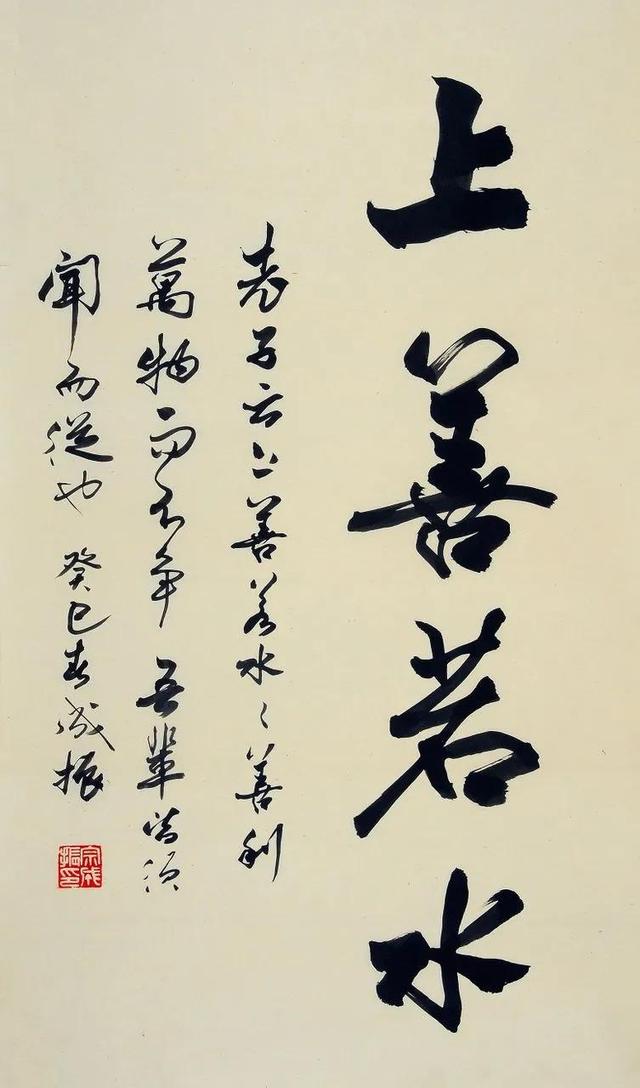 上善若水
老子云上善若水〻善利
萬物而不争吾輩皆須
聞而從也癸巳春成振
宗成振印